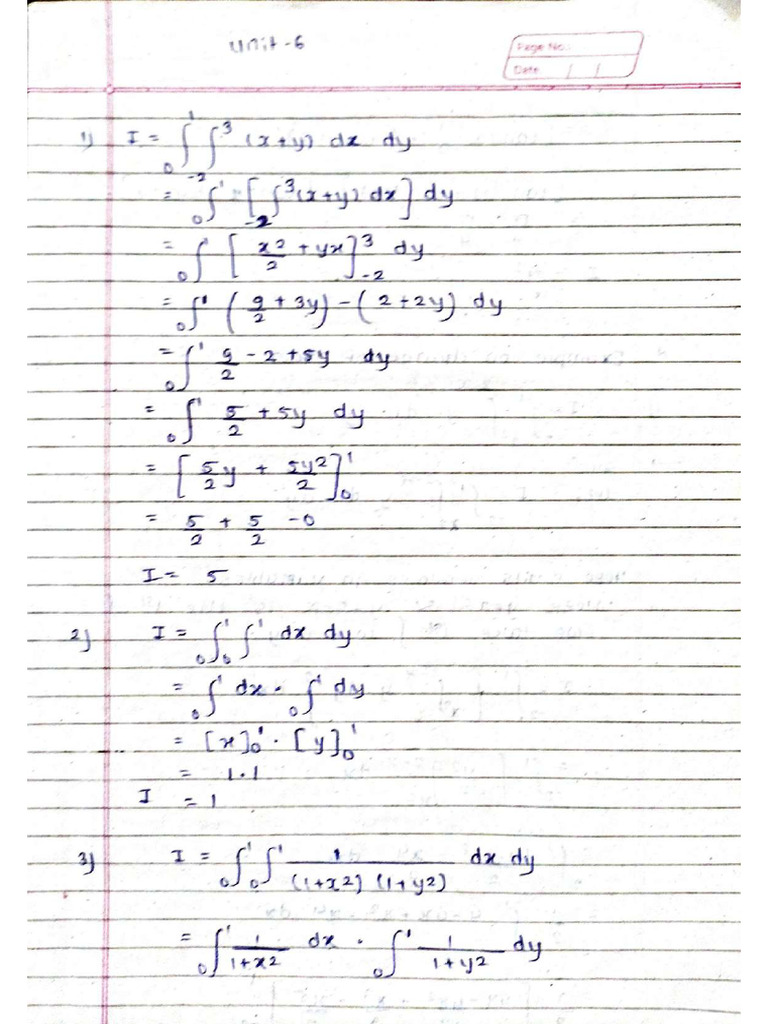 Unit-6
Page No.
Date / /
1) I = ∫₀¹ ∫₋₂³ (x+y) dx dy
= ∫₀¹ [∫₋₂³ (x+y) dx] dy
= ∫₀¹ [x²/2 + yx]₋₂³ dy
= ∫₀¹ (9/2 + 3y) - (2 + 2y) dy
= ∫₀¹ 9/2 - 2 + 5y dy
= ∫₀¹ 5/2 + 5y dy
= [5/2 y + 5y²/2]₀¹
= 5/2 + 5/2 - 0
I = 5
2) I = ∫₀¹ ∫₀¹ dx dy
= ∫₀¹ dx · ∫₀¹ dy
= [x]₀¹ · [y]₀¹
= 1.1
I = 1
3) I = ∫₀¹ ∫₀¹ 1/((1+x²) (1+y²)) dx dy
= ∫₀¹ 1/(1+x²) dx · ∫₀¹ 1/(1+y²) dy